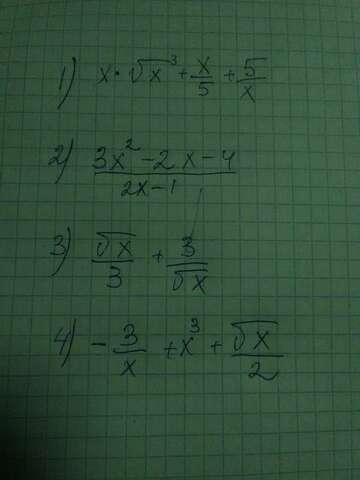 1) x · √x³ + x/5 + 5/x
2) (3x² - 2x - 4)/(2x - 1)
3) √x/3 + 3/√x
4) - 3/x + x³ + √x/2